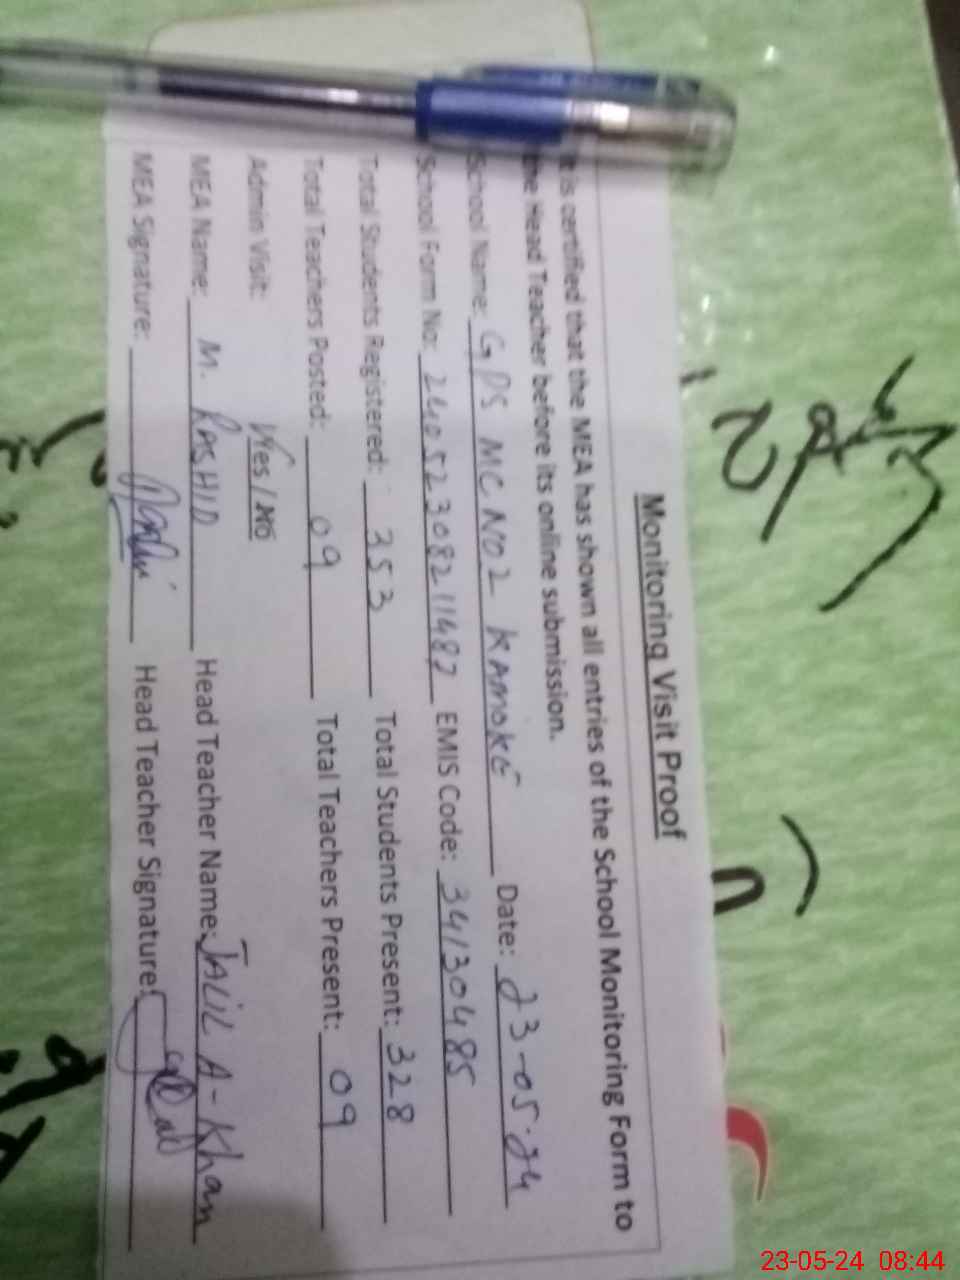 Monitoring Visit Proof
It is certified that the MEA has shown all entries of the School Monitoring Form to
the Head Teacher before its online submission.
School Name: GPS MC NO2 KAMOKE Date: 23-05-24
School Form No: 24052308211487 EMIS Code: 34130485
Total Students Registered: 353 Total Students Present: 328
Total Teachers Posted: 09 Total Teachers Present: 09
Admin Visit: Yes / No
MEA Name: M. RASHID Head Teacher Name: JALIL A-Khan
MEA Signature: Head Teacher Signature:
23-05-24 08:44